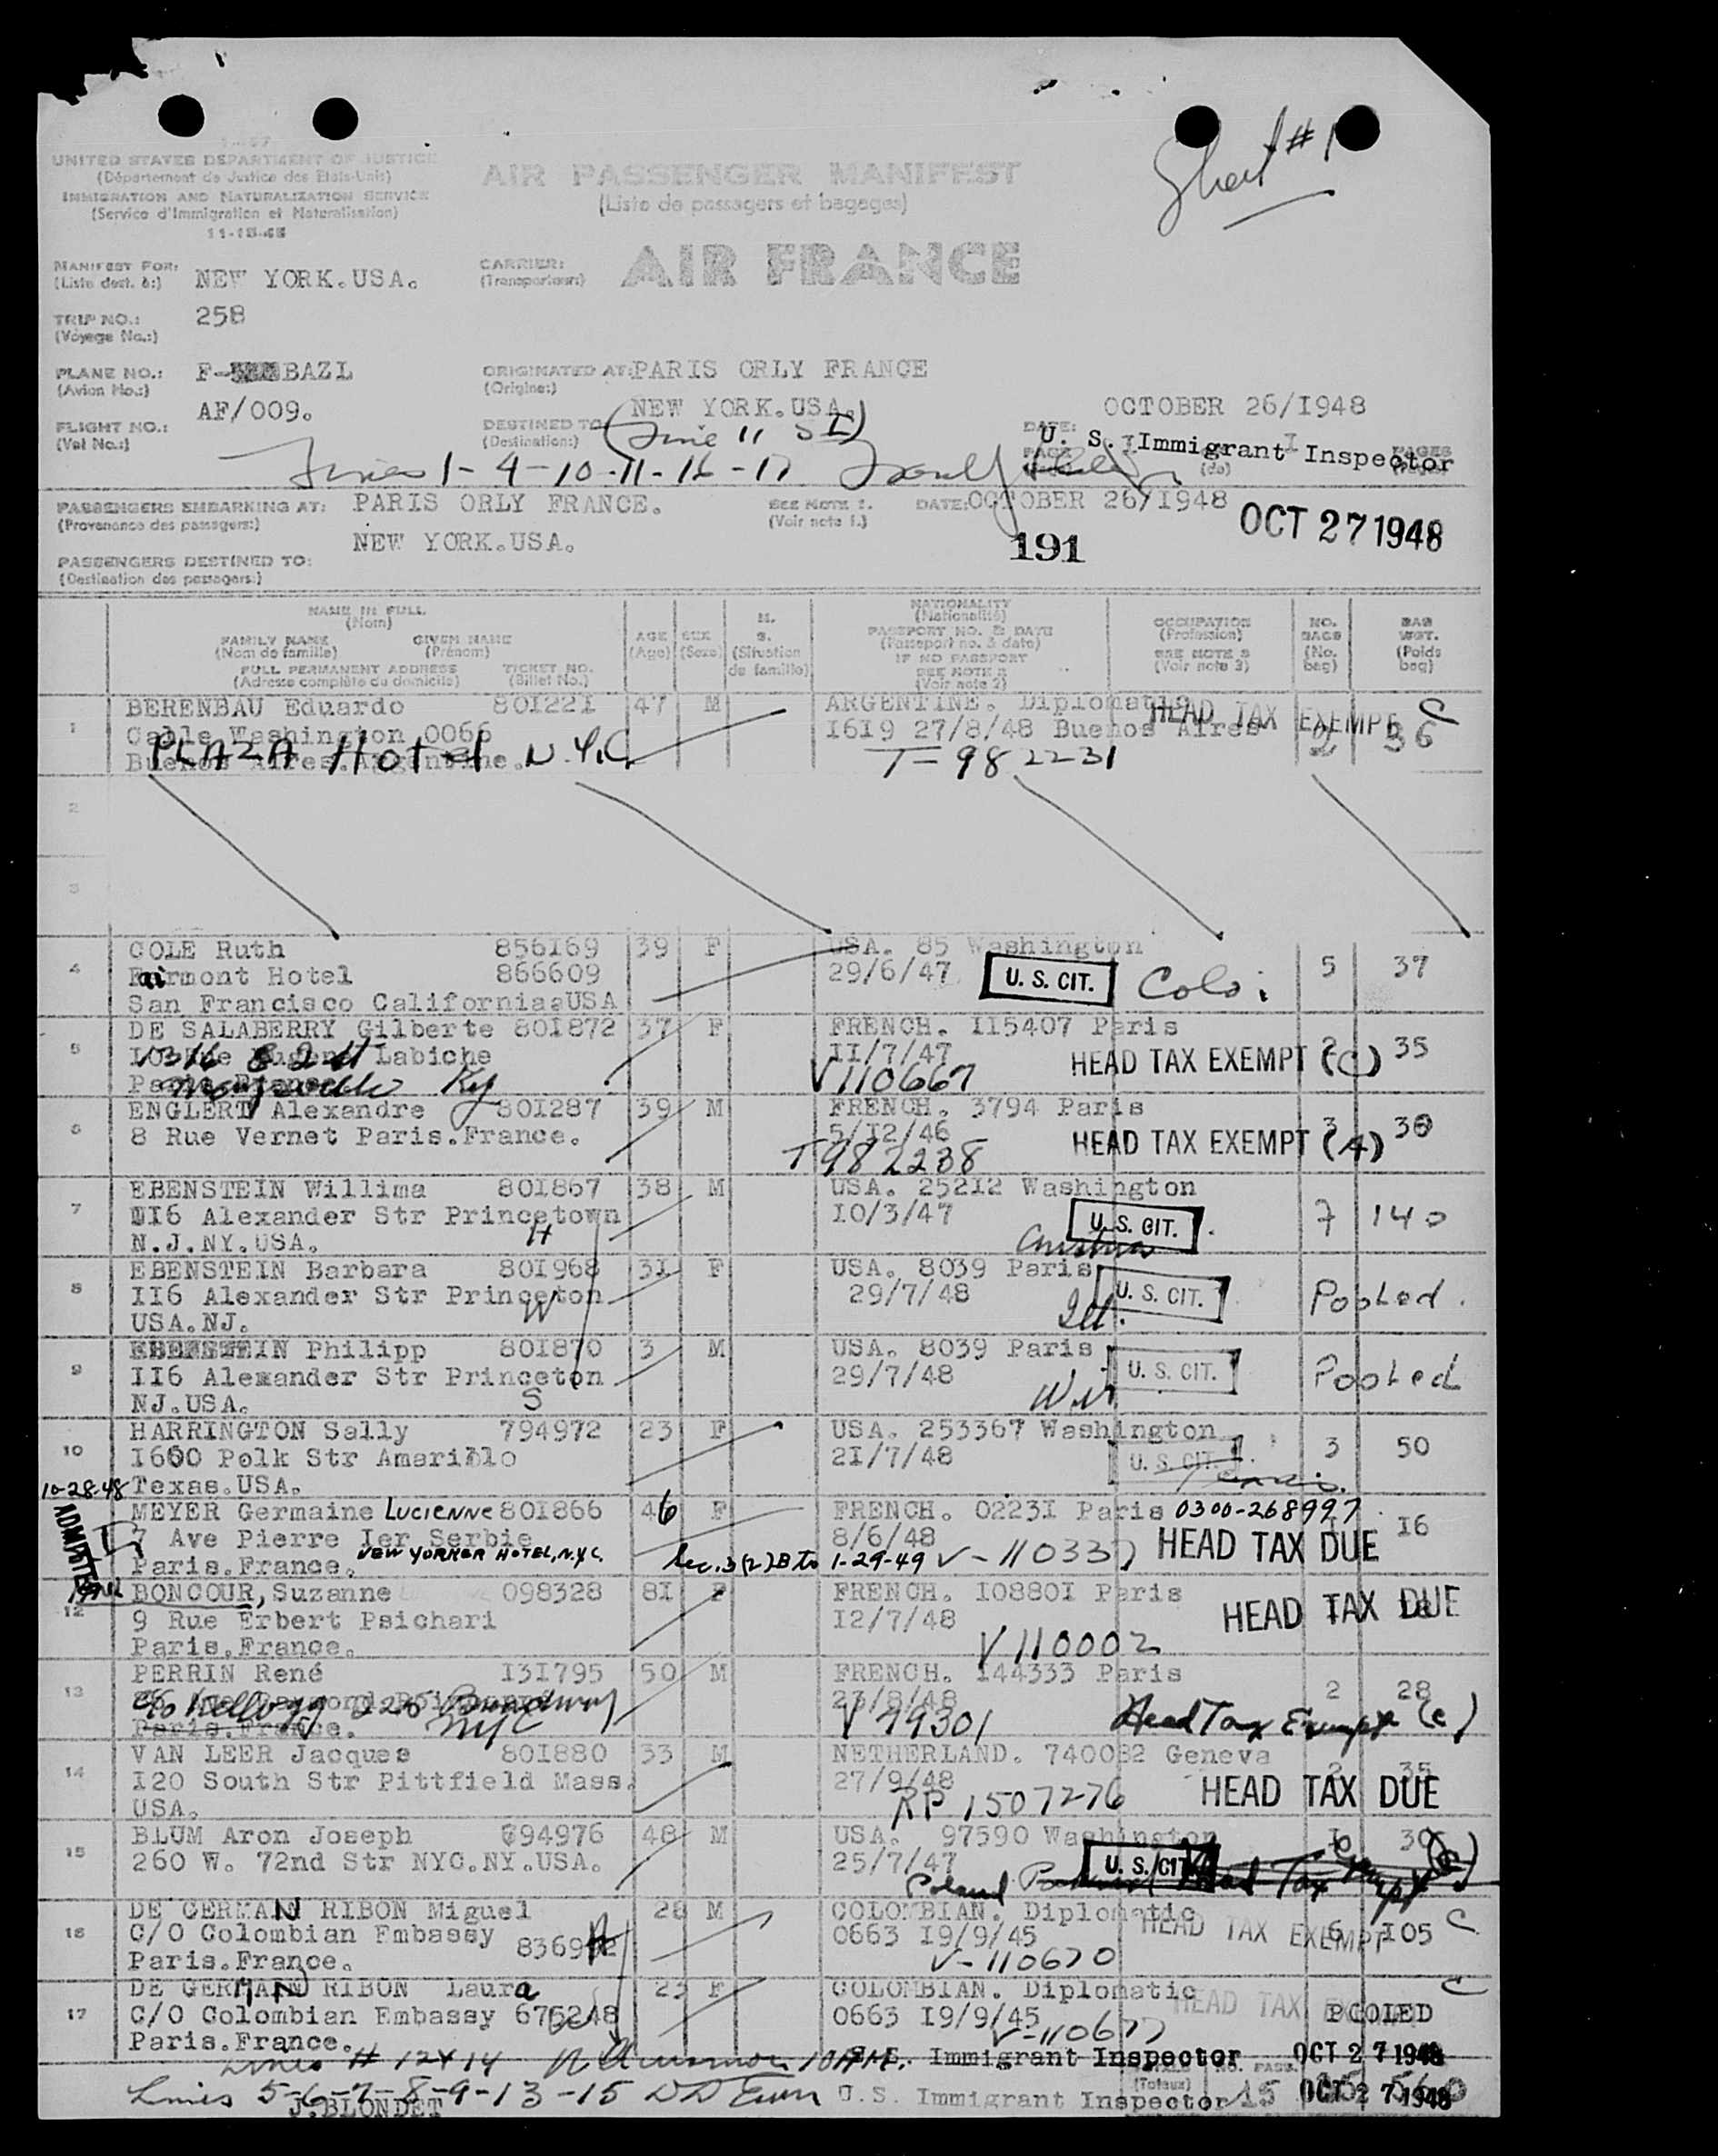 Sheet #1
UNITED STATES DEPARTMENT OF JUSTICE
(Département de Justice des Etats-Unis)
IMMIGRATION AND NATURALIZATION SERVICE
(Service d'Immigration et Naturalisation)
11-15-45
AIR PASSENGER MANIFEST
(Liste de passagers et bagages)
MANIFEST FOR: NEW YORK.USA.
(Liste dest. à:)
CARRIER: AIR FRANCE
(Transporteur:)
TRIP NO.: 258
(Voyage No.:)
PLANE NO.: F- BAZL
(Avion No.:)
ORIGINATED AT: PARIS ORLY FRANCE
(Origine:)
FLIGHT NO.: AF/009.
(Vol No.:)
DESTINED TO: NEW YORK.USA.
(Destination:)
(Line 11 SI)
OCTOBER 26/I948
DATE:
U. S. Immigrant Inspector
PAGE I (de) I PAGES
Lines 1-4-10-11-16-17
PASSENGERS EMBARKING AT: PARIS ORLY FRANCE.
(Provenance des passagers:)
SEE NOTE 1.
(Voir note 1.)
DATE: OCTOBER 26/I948
OCT 27 1948
191
PASSENGERS DESTINED TO: NEW YORK.USA.
(Destination des passagers:)
NAME IN FULL
(Nom)
FAMILY NAME GIVEN NAME
(Nom de famille) (Prénom)
FULL PERMANENT ADDRESS TICKET NO.
(Adresse complète du domicile) (Billet No.)
AGE
(Age)
SEX
(Sexe)
M.
S.
(Situation
de famille)
NATIONALITY
(Nationalité)
PASSPORT NO. & DATE
(Passeport no. & date)
IF NO PASSPORT
SEE NOTE 2
(Voir note 2)
OCCUPATION
(Profession)
SEE NOTE 3
(Voir note 3)
NO.
BAGS
(No.
bag)
BAG
WGT.
(Poids
bag)
1 BERENBAU Eduardo 80I22I 47 M ARGENTINE. Diplomatic HEAD TAX EXEMPT C
Calle Washington 0066 I6I9 27/8/48 Buenos Aires 2 36
Buenos Aires.Argentine.
PLAZA Hotel N.Y.C T-982231
2
3
4 COLE Ruth 856I69 39 F USA. 85 Washington
Fairmont Hotel 866609 29/6/47 U. S. CIT. Colo. 5 37
San Francisco California.USA
5 DE SALABERRY Gilberte 80I872 37 F FRENCH. II5407 Paris
Rue Eugene Labiche II/7/47 HEAD TAX EXEMPT (C) 2 35
Paris.France. Ky V110667
6 ENGLERT Alexandre 80I287 39 M FRENCH. 3794 Paris
8 Rue Vernet Paris.France. 5/I2/46 HEAD TAX EXEMPT (A) 3 30
T982238
7 EBENSTEIN Willima 80I867 38 M USA. 252I2 Washington
II6 Alexander Str Princetown I0/3/47 U. S. CIT. 7 140
N.J.NY.USA. H Austria
8 EBENSTEIN Barbara 80I968 3I F USA. 8039 Paris
II6 Alexander Str Princeton 29/7/48 U. S. CIT. Pooled.
USA.NJ. W Ill.
9 EBENSTEIN Philipp 80I870 3 M USA. 8039 Paris
II6 Alexander Str Princeton 29/7/48 U. S. CIT. Pooled
NJ.USA. S Wis
10 HARRINGTON Sally 794972 23 F USA. 253367 Washington
I600 Polk Str Amarillo 2I/7/48 U. S. CIT. 3 50
Texas.USA. Texas.
10-28-48 ADMITTED
MEYER Germaine LUCIENNE 80I866 46 F FRENCH. 0223I Paris 0300-268997
7 Ave Pierre Ier Serbie 8/6/48 HEAD TAX DUE I6
Paris.France. NEW YORKER HOTEL, N.Y.C. Sec. 3(2) B to 1-29-49 V-110337
12 BONCOUR, Suzanne 098328 8I F FRENCH. I0880I Paris
9 Rue Erbert Psichari I2/7/48 HEAD TAX DUE
Paris.France. V110002
13 PERRIN René I3I795 50 M FRENCH. I44333 Paris
c/o Kellogg 225 Broadway 23/8/48 2 28
Paris.France. NYC V 99301 Head Tax Exempt (c)
14 VAN LEER Jacques 80I880 33 M NETHERLAND. 740082 Geneva
I20 South Str Pittfield Mass. 27/9/48 HEAD TAX DUE 2 35
USA. RP 1507276
15 BLUM Aron Joseph 694976 48 M USA. 97590 Washington 30
260 W. 72nd Str NYC.NY.USA. 25/7/47 U. S. CIT.
Poland Head Tax Exempt
16 DE GERMAN RIBON Miguel 28 M COLOMBIAN. Diplomatic
C/O Colombian Embassy 0663 I9/9/45 HEAD TAX EXEMPT 6 I05 C
Paris.France. V-110670
17 DE GERMAN RIBON Laura 23 F COLOMBIAN. Diplomatic C
C/O Colombian Embassy 675248 0663 I9/9/45 HEAD TAX EXEMPT POOLED
Paris.France. V-110677
Lines #12 & 14 U.S. Immigrant Inspector OCT 27 1948
Lines 5-6-7-8-9-13-15 U.S. Immigrant Inspector (Totaux) NO. PASS. 15 OCT 27 1948
J.BLONDET